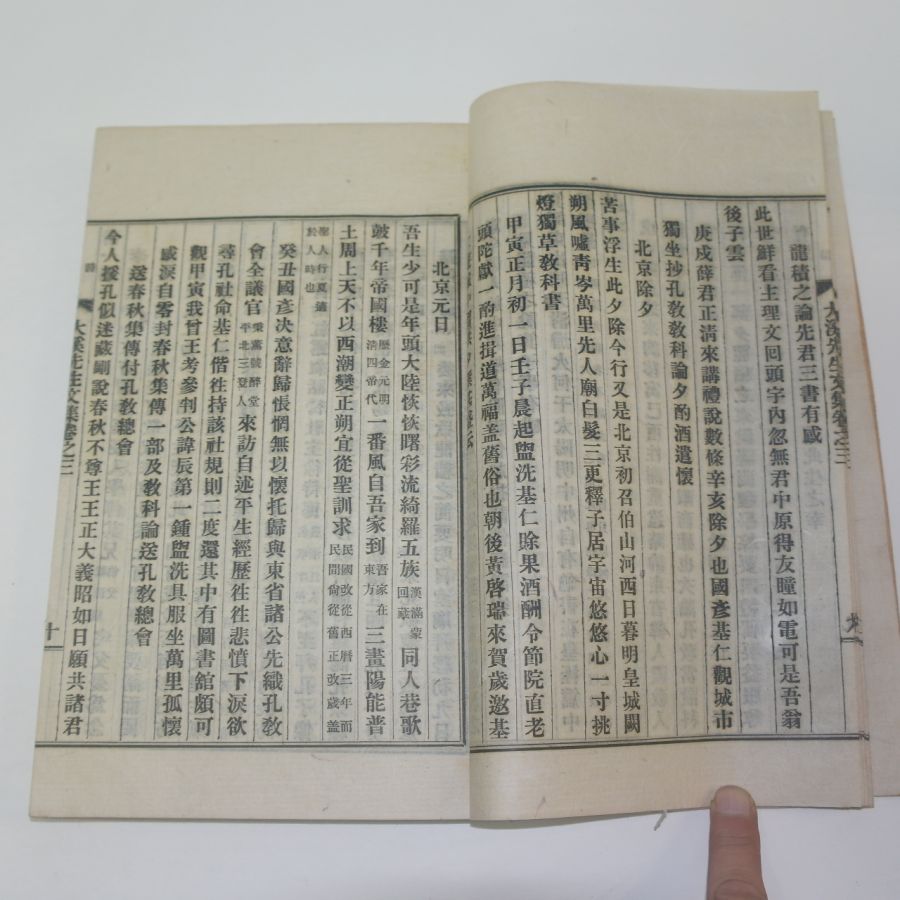 龍積之論先君三書有感
此世鮮看主理文回頭宇內忽無君中原得友瞳如電可是吾翁
後子雲
庚戌薛君正清來講禮說數條辛亥除夕也國彥基仁觀城市
獨坐抄孔敎敎科論夕酌酒遣懷
北京除夕
苦事浮生此夕除今行又是北京初召伯山河西日暮明皇城闕
朔風噓靑岑萬里先人廟白髮三更釋子居宇宙悠悠心一寸挑
燈獨草敎科書
甲寅正月初一日壬子晨起盥洗基仁賖果酒酬令節院直老
頭陀獻一酌進揖道萬福盖舊俗也朝後黃啓瑞來賀歲邀基
北京元日
吾生少可是年頭大陸恢恢曙彩流綺羅五族漢滿蒙回藏同人巷歌
皷千年帝國樓歷金元明淸四帝代一番風自吾家到吾家在東方三晝陽能普
土周上天不以西潮變正朔宜從聖訓求民國改從西曆三年而民間倘從舊正改歲盖
聖人行夏適於人時也
癸丑國彥決意辭歸悵惘無以懷托歸與東省諸公先織孔敎
會全議官秉薰號醉堂平北三登人來訪自述平生經歷徃徃悲憤下淚欲
尋孔社命基仁偕徃持該社規則二度還其中有圖書館頗可
觀甲寅我曾王考參判公諱辰第一鍾盥洗具服坐萬里孤懷
感淚自零封春秋集傳一部及敎科論送孔敎總會
送春秋集傳付孔敎總會
今人援孔似迷藏剛說春秋不尊王王正大義昭如日願共諸君
大溪先生文集卷之三
十
大溪先生文集卷之三